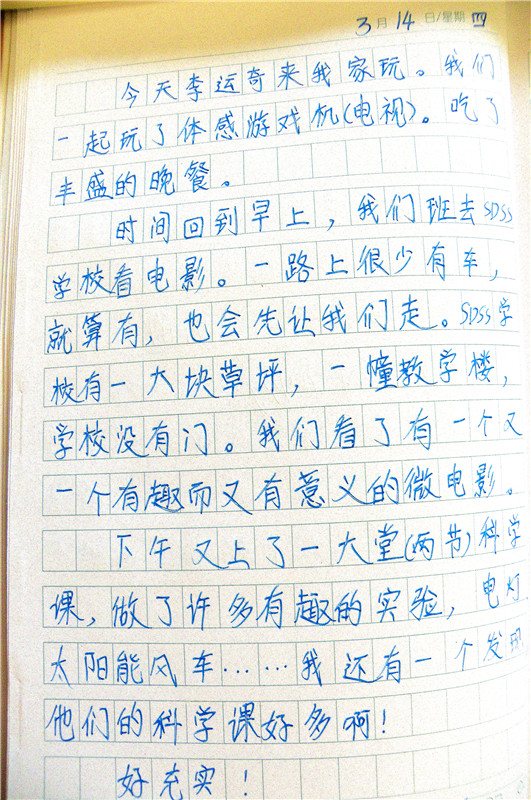 3月14日/星期四
今天李运奇来我家玩。我们
一起玩了体感游戏机(电视)。吃了
丰盛的晚餐。
时间回到早上，我们班去SDSS
学校看电影。一路上很少有车，
就算有，也会先让我们走。SDSS学
校有一大块草坪，一幢教学楼，
学校没有门。我们看了有一个又
一个有趣而又有意义的微电影。
下午又上了一大堂(两节)科学
课，做了许多有趣的实验，电灯、
太阳能风车……我还有一个发现
他们的科学课好多啊！
好充实！